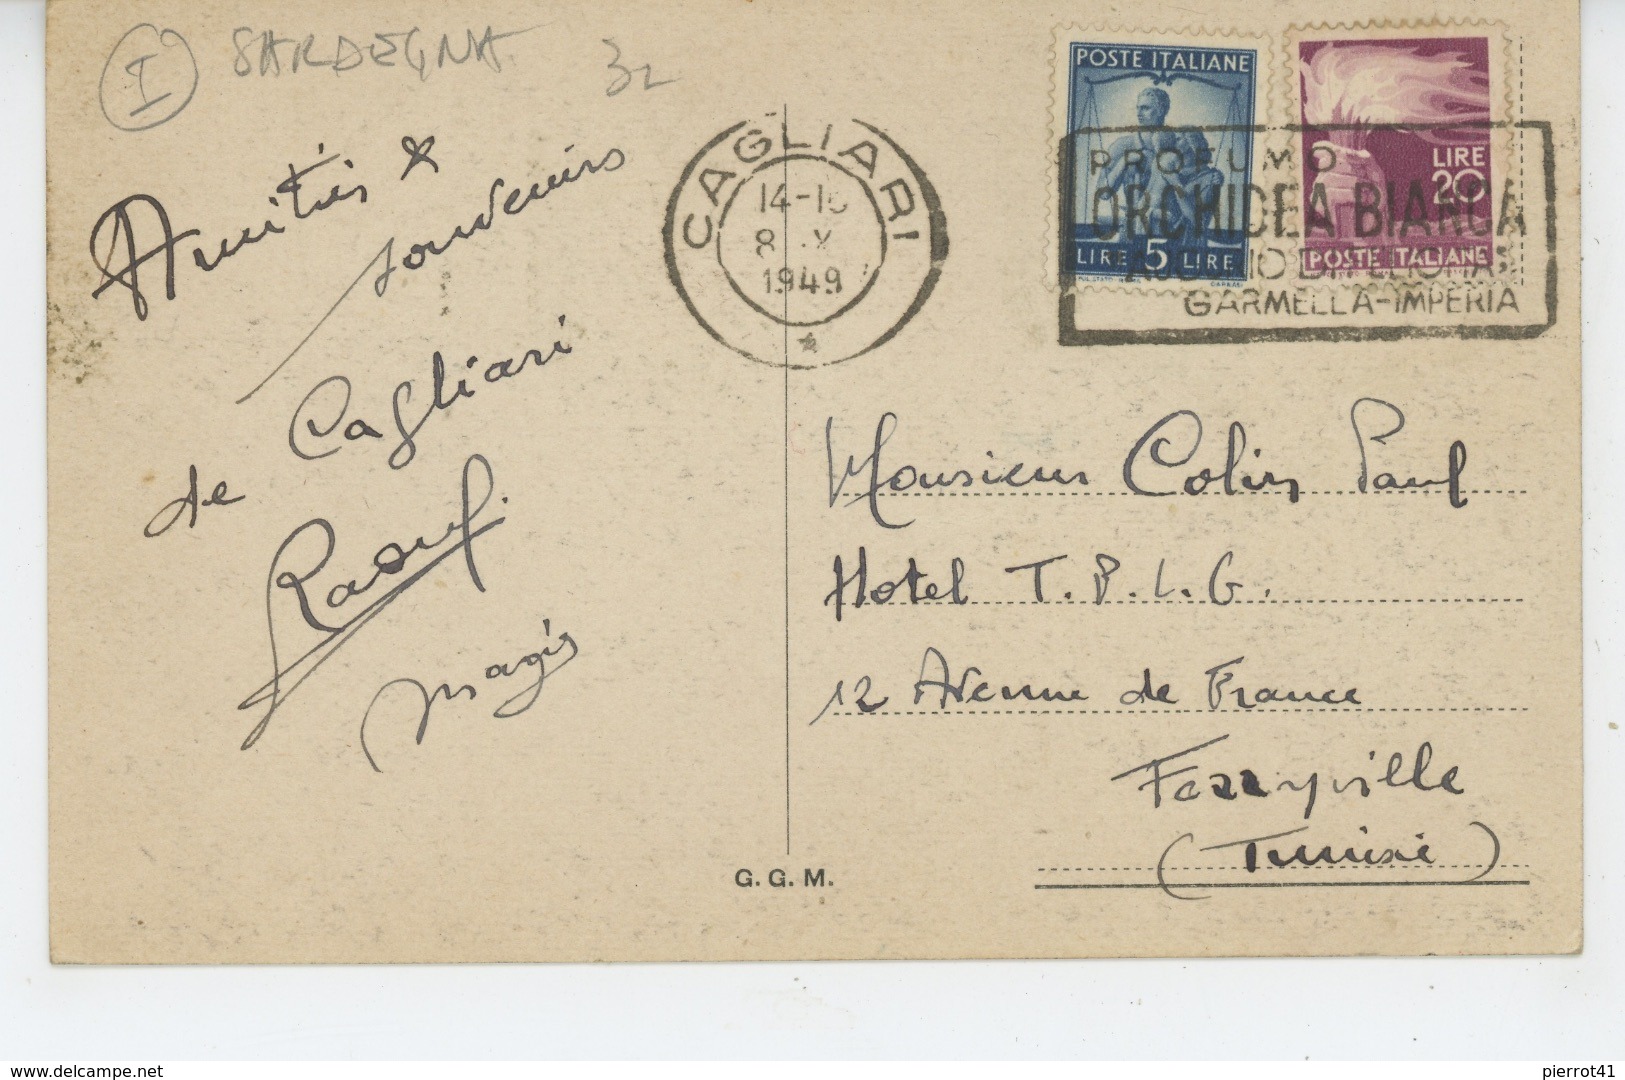 I SARDEGNA
Amitiés &
souvenirs
de Cagliari
Raouf.
CAGLIARI
14-15
8 X
1949
POSTE ITALIANE
LIRE 5 LIRE
LIRE
20
POSTE ITALIANE
PROFUMO
ORCHIDEA BIANCA
GARMELLA-IMPERIA
Monsieur Colin Paul
Hotel T.P.L.G.
12 Avenue de France
Ferryville
(Tunisie)
G. G. M.
delcampe.net
pierrot41